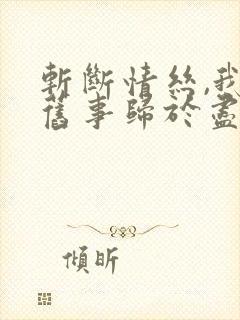 斬斷情絲,我
舊事歸於盡
傾昕